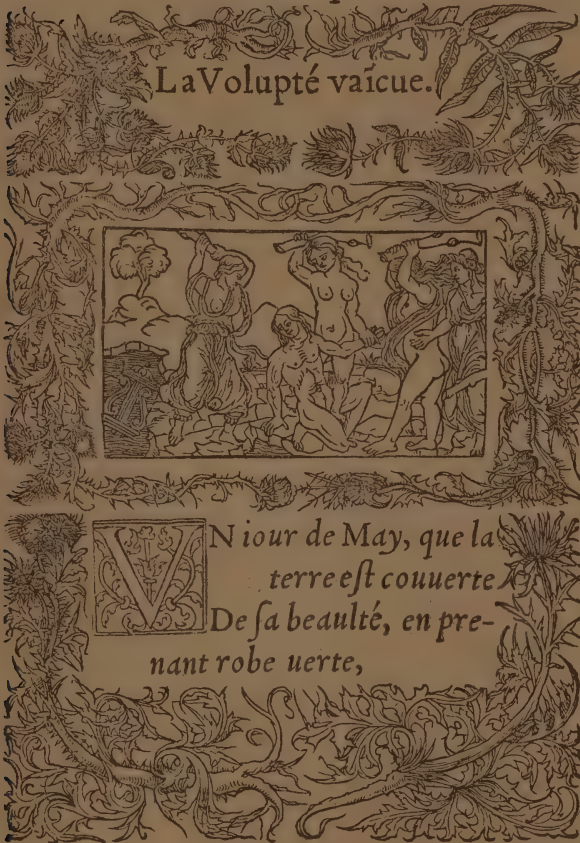 La Volupté vaīcue.
VN iour de May, que la
terre eſt couuerte
De ſa beaulté, en pre-
nant robe uerte,